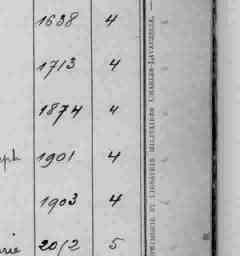 1638 4
1713 4
1874 4
1901 4
1903 4
2012 5
IMPRIMERIE ET LIBRAIRIE MILITAIRES CHARLES-LAVAUZELLE. —